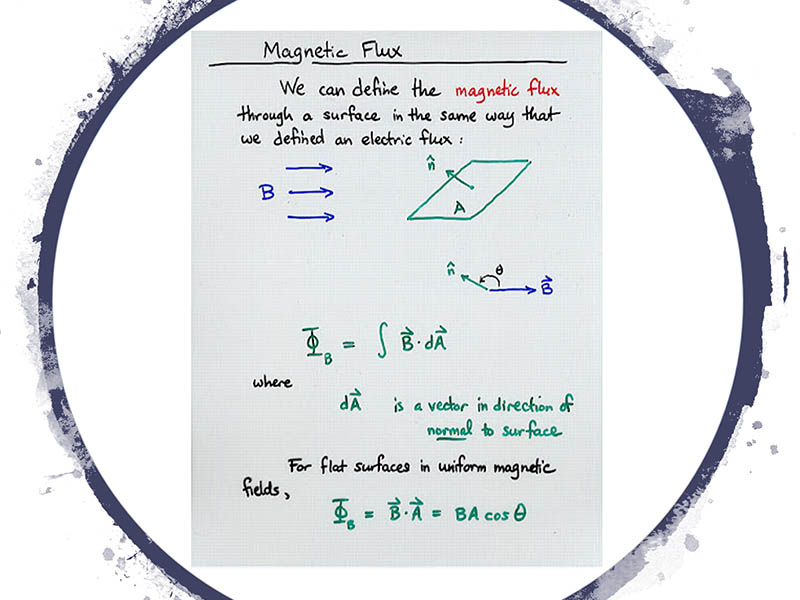 Magnetic Flux
We can define the magnetic flux
through a surface in the same way that
we defined an electric flux:
B
n̂
A
n̂ θ B⃗
Φ_B = ∫ B⃗ · dA⃗
where
dA⃗ is a vector in direction of
normal to surface
For flat surfaces in uniform magnetic
fields,
Φ_B = B⃗ · A⃗ = BA cos θ